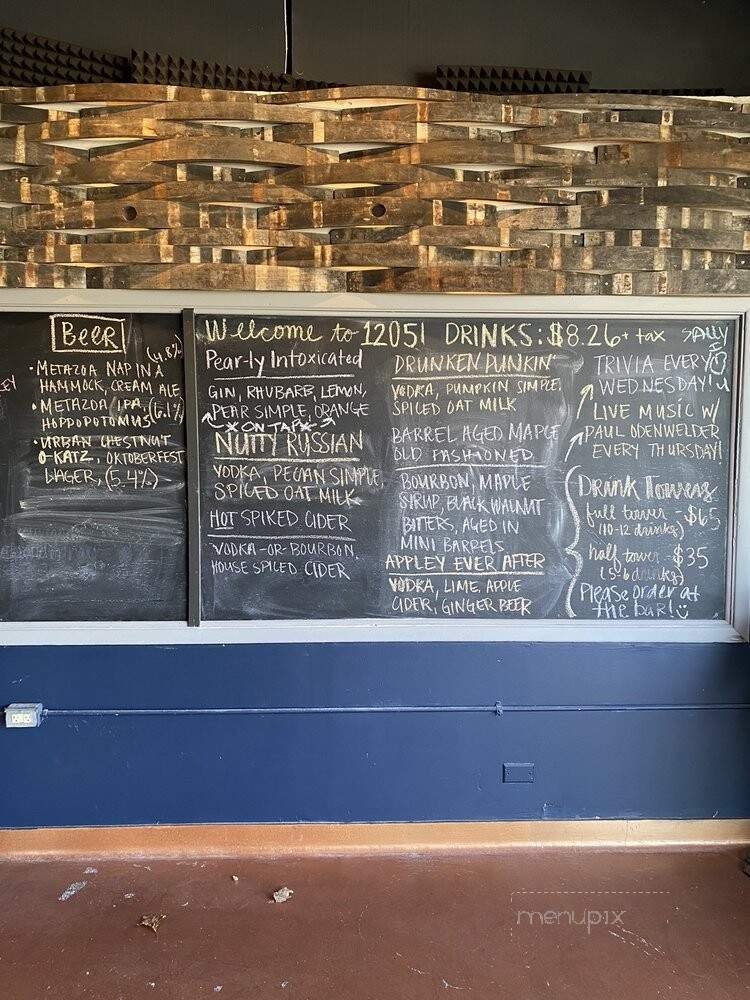 BEER
(4.8%)
• METAZOA NAP IN A
HAMMOCK, CREAM ALE
• METAZOA IPA, (6.1%)
HOPPOPOTOMUS
• URBAN CHESTNUT
O-KATZ, OKTOBERFEST
LAGER, (5.4%)
Welcome to 1205! DRINKS: $8.26 + tax
Pear-ly Intoxicated
GIN, RHUBARB, LEMON,
PEAR SIMPLE, ORANGE
* ON TAP *
NUTTY RUSSIAN
VODKA, PECAN SIMPLE,
SPICED OAT MILK
HOT SPIKED CIDER
VODKA -OR- BOURBON,
HOUSE SPICED CIDER
DRUNKEN PUNKIN'
VODKA, PUMPKIN SIMPLE,
SPICED OAT MILK
BARREL AGED MAPLE
OLD FASHIONED
BOURBON, MAPLE
SYRUP, BLACK WALNUT
BITTERS, AGED IN
MINI BARRELS
APPLEY EVER AFTER
VODKA, LIME, APPLE
CIDER, GINGER BEER
TRIVIA EVERY
WEDNESDAY!
LIVE MUSIC W/
PAUL ODENWELDER
EVERY THURSDAY!
Drink Towers
full tower - $65
(10-12 drinks)
half tower - $35
(5-6 drinks)
Please order at
the bar! :)
menupix